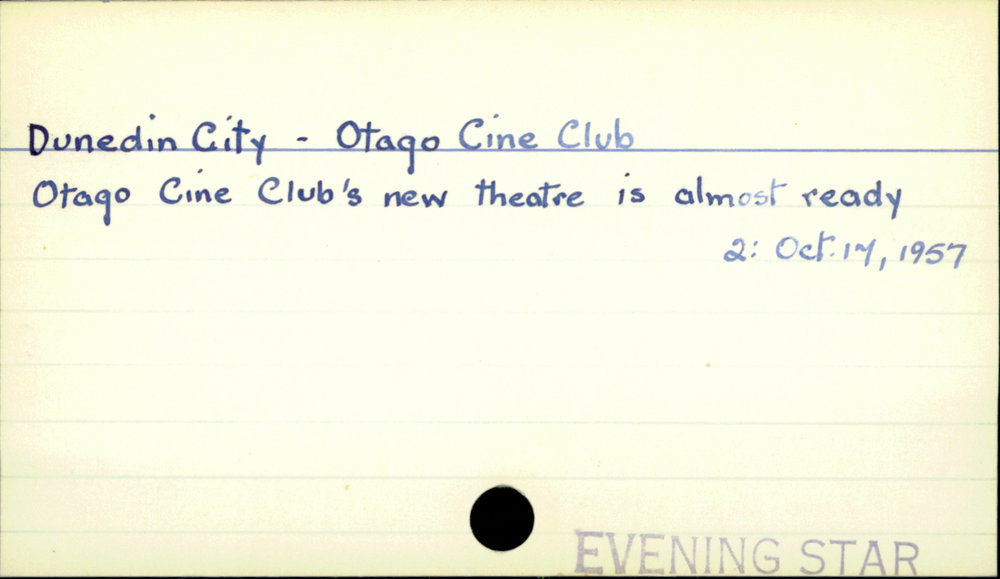 Dunedin City - Otago Cine Club
Otago Cine Club's new theatre is almost ready
2: Oct. 17, 1957
EVENING STAR